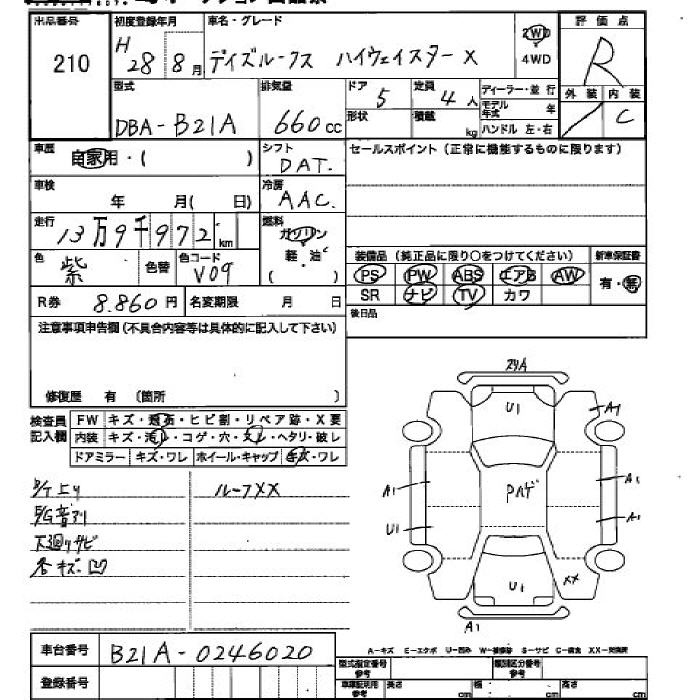 出品番号 初度登録年月 車名・グレード 2WD 評価点
210 H 28年 8月 デイズルークス ハイウェイスター X 4WD R
型式 排気量 ドア 定員 ディーラー・並行 外装 内装
DBA-B21A 660cc 5 4人 モデル年式 年 / C
形状 積載 kg ハンドル 左・右
車歴 自家用・( ) シフト DAT. セールスポイント(正常に機能するものに限ります)
車検 年 月( 日) 冷房 AAC.
走行 13万9千972km 燃料 ガソリン 軽・油 ( )
色 紫 色替 色コード V09
装備品(純正品に限り○をつけてください) 新車保証書
PS PW ABS エアB AW 有・無
SR ナビ TV カワ
R券 8.860円 名変期限 月 日 後日品
注意事項申告欄(不具合内容等は具体的に記入して下さい)
修復歴 有 (箇所 )
検査員記入欄 FW キズ・飛石・ヒビ割・リペア跡・X要
内装 キズ・汚レ・コゲ・穴・スレ・ヘタリ・破レ
ドアミラー キズ・ワレ ホイール・キャップ キズ・ワレ
ルーフXX
下廻りサビ
24A
U1 A1
A1 Pハゲ A1
U1 A1
U1 XX
A1
A-キズ E-エクボ U-凹み W-補修跡 S-サビ C-腐食 XX-交換済
車台番号 B21A-0246020
登録番号
型式指定番号 参考 類別区分番号 参考
車庫証明用 参考 長さ cm 幅 cm 高さ cm